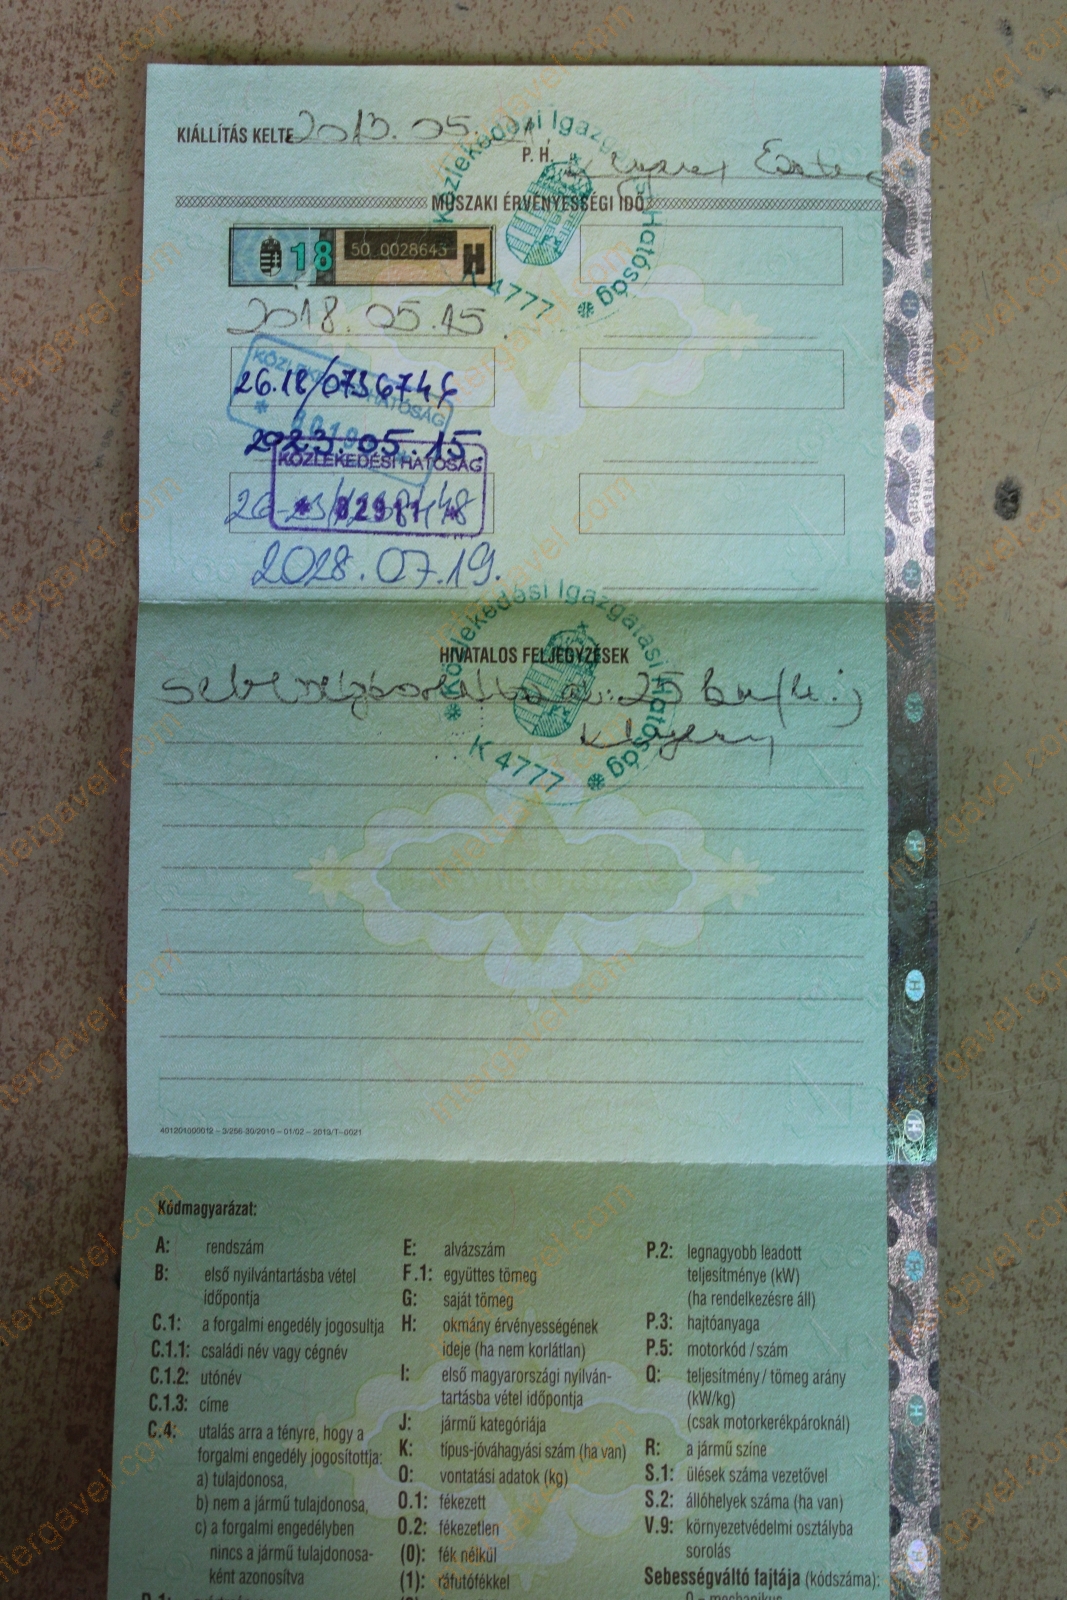 KIÁLLÍTÁS KELTE 2013. 05. 21
P. H.
Közlekedési Igazgatási Hatóság
K 4777
MŰSZAKI ÉRVÉNYESSÉGI IDŐ
18 50 0028643 H
2018. 05. 15.
KÖZLEKEDÉSI HATÓSÁG
26.18/0736746
2023. 05. 15.
KÖZLEKEDÉSI HATÓSÁG
2028. 07. 19.
Közlekedési Igazgatási Hatóság
K 4777
HIVATALOS FELJEGYZÉSEK
25 km/h
401201000012 – 3/256-30/2010 – 01/02 – 2013/T–0021
Kódmagyarázat:
A: rendszám
B: első nyilvántartásba vétel
időpontja
C.1: a forgalmi engedély jogosultja
C.1.1: családi név vagy cégnév
C.1.2: utónév
C.1.3: címe
C.4: utalás arra a tényre, hogy a
forgalmi engedély jogosítottja:
a) tulajdonosa,
b) nem a jármű tulajdonosa,
c) a forgalmi engedélyben
nincs a jármű tulajdonosa-
ként azonosítva
E: alvázszám
F.1: együttes tömeg
G: saját tömeg
H: okmány érvényességének
ideje (ha nem korlátlan)
I: első magyarországi nyilván-
tartásba vétel időpontja
J: jármű kategóriája
K: típus-jóváhagyási szám (ha van)
O: vontatási adatok (kg)
O.1: fékezett
O.2: fékezetlen
(0): fék nélkül
(1): ráfutófékkel
P.2: legnagyobb leadott
teljesítménye (kW)
(ha rendelkezésre áll)
P.3: hajtóanyaga
P.5: motorkód / szám
Q: teljesítmény / tömeg arány
(kW/kg)
(csak motorkerékpároknál)
R: a jármű színe
S.1: ülések száma vezetővel
S.2: állóhelyek száma (ha van)
V.9: környezetvédelmi osztályba
sorolás
Sebességváltó fajtája (kódszáma):
0 – mechanikus
intergavel.com